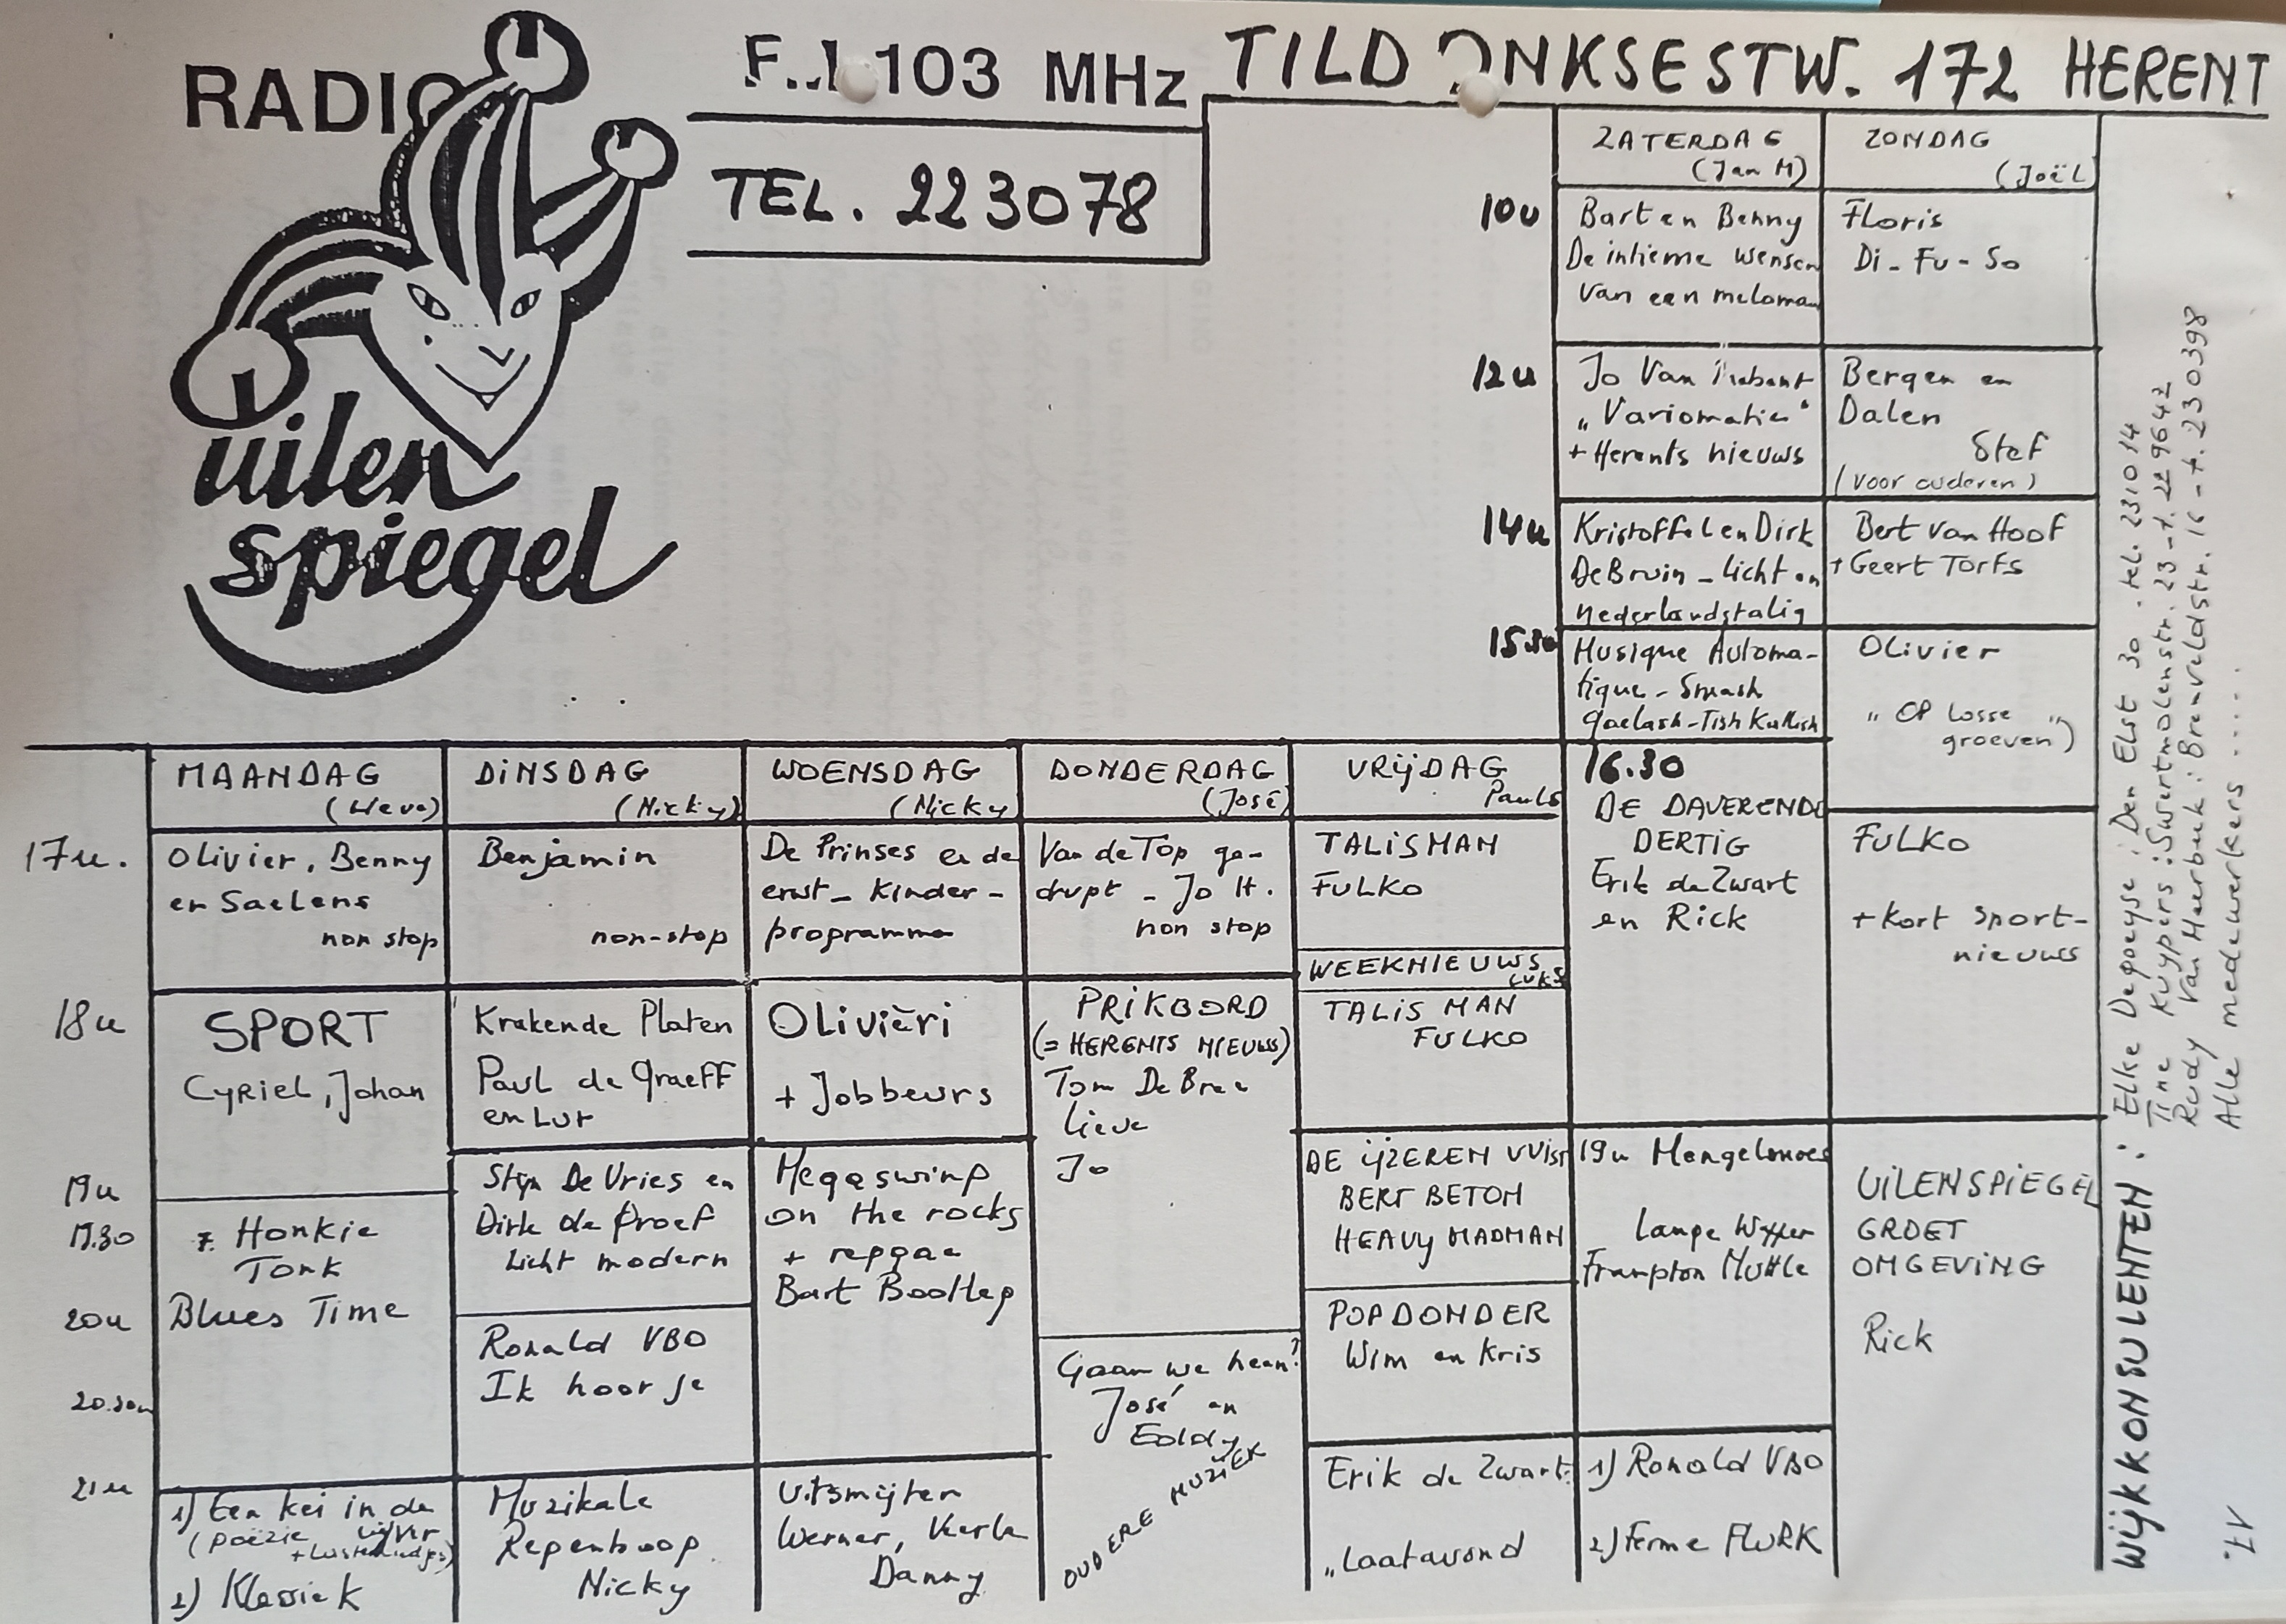 RADIO
uilen
spiegel
F.. 103 MHz
TEL. 223078
TILD NKSESTW. 172 HERENT
ZATERDAG
(Jan M)
ZONDAG
(Joël
10u
Bart en Benny
De intieme wensen
van een meloman
Floris
Di - Fu - So
12u
Jo Van
„Variomatic"
+ Herents nieuws
Bergen en
Dalen
Stef
(voor ouderen)
14u
Kristoffel en Dirk
De Bruin - licht en
nederlandstalig
Bert van Hoof
+ Geert Torfs
15.30
Musique Automa-
tique - Smash
Olivier
„ OP losse
groeven ")
MAANDAG
(Lieve)
DINSDAG
(Nicky)
WOENSDAG
(Nicky
DONDERDAG
(José)
VRIJDAG
Pauls
16.30
DE DAVERENDE
DERTIG
Erik de Zwart
en Rick
17u.
Olivier, Benny
en Saelens
non stop
Benjamin
non-stop
De Prinses en de
erwt - Kinder-
programma
Van de Top ge-
drupt - Jo H.
non stop
TALISMAN
FULKO
WEEKNIEUWS
FULKO
+ kort sport-
nieuws
18u
SPORT
Cyriel, Johan
Krakende Platen
Paul de Graeff
en Lut
Olivièri
+ Jobbeurs
PRIKBORD
(= HERENTS NIEUWS)
Tom De Bree
Lieve
Jo
TALISMAN
FULKO
19u
19.30
Honkie
Tonk
Blues Time
Stijn De Vries en
Dirk de Proef
Licht modern
Megaswing
on the rocks
+ reggae
Bart Bootleg
DE IJZEREN VUIST
BERT BETON
HEAVY MADMAN
19u Mengelmoes
Lange Wapper
Frampton Muttle
UILENSPIEGEL
GROET
OMGEVING
Rick
20u
20.30u
Ronald VBO
Ik hoor je
Gaan we heen?
José en
Eddy
OUDERE MUZIEK
POPDONDER
Wim en Kris
21u
1) Een kei in de
vijver
(poëzie
+ luisterliedjes)
2) Klassiek
Muzikale
Regenboog
Nicky
Uitsmijter
Werner, Karla
Danny
Erik de Zwart
„Laatavond
1) Ronald VBO
2) Ferme FLURK
WIJKKONSULENTEN : Elke Degoeyse : Den Elst 30 . tel. 231014
Tine Kuypers : Swertmolenstr. 23 - t. 229642
Rudy Van Meerbeek : Breuveldstr. 16 - t. 230398
Alle medewerkers .....